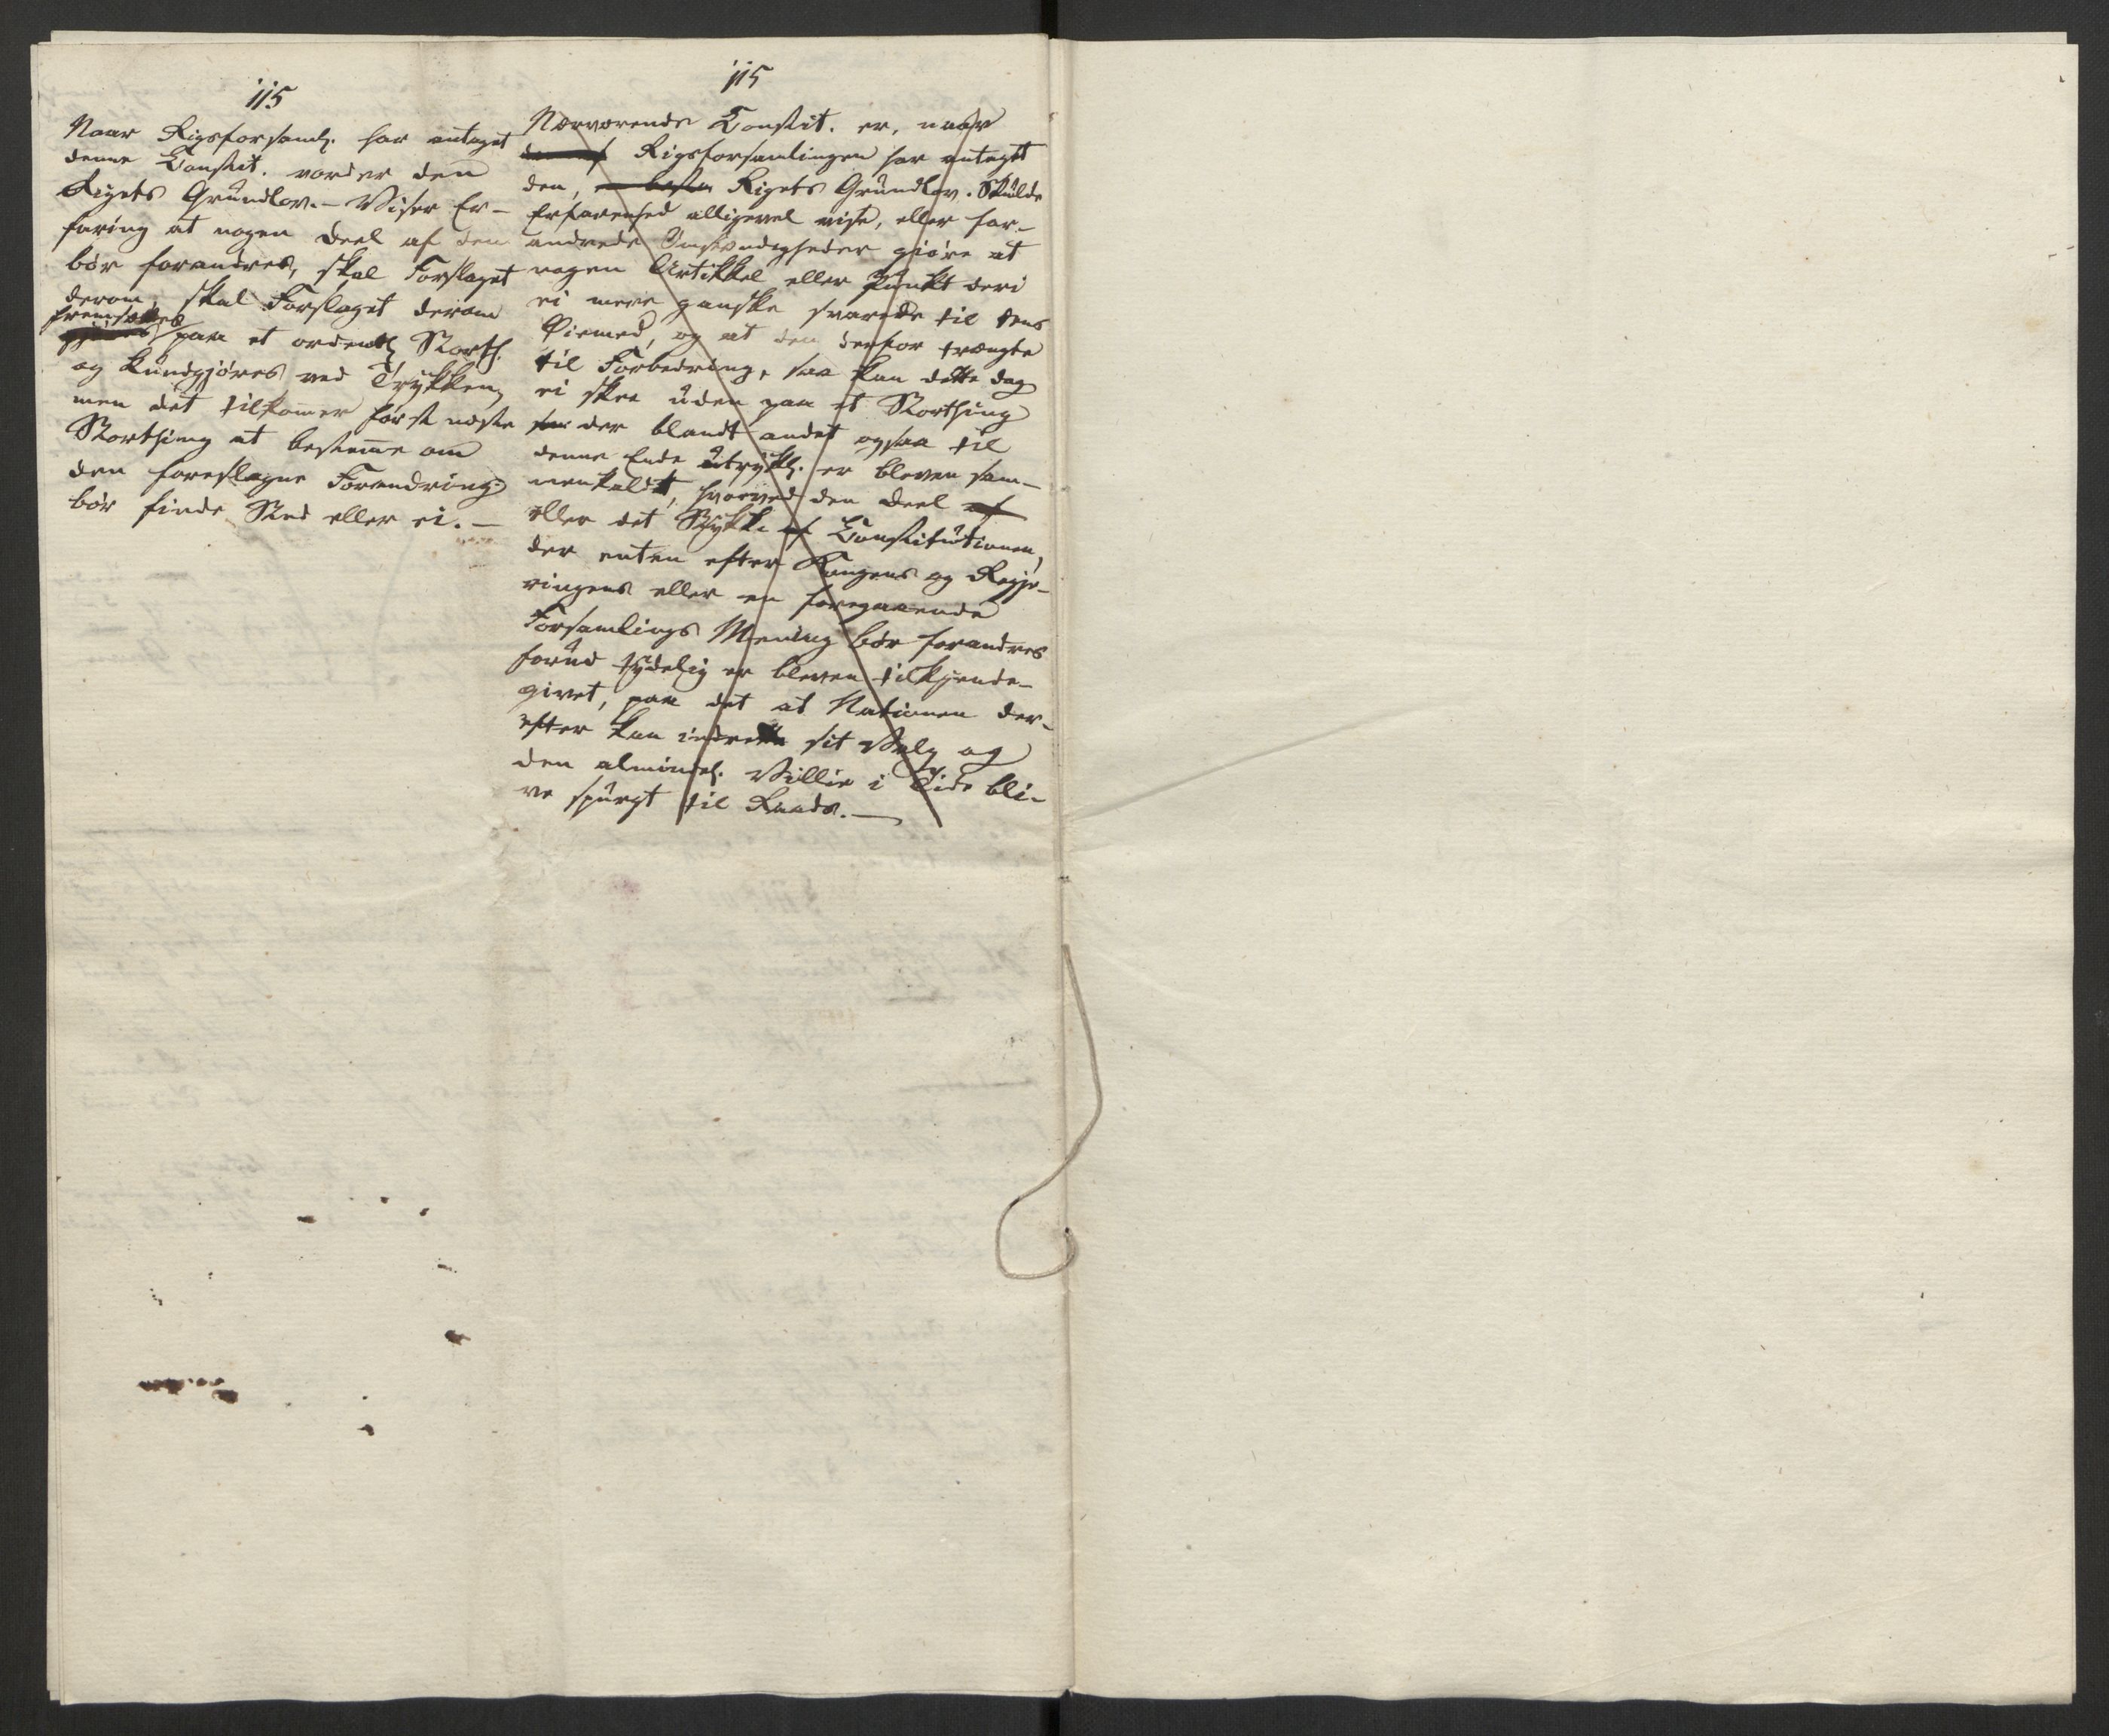 115
Naar Rigsforsaml. har antaget
denne Constit. vorder den
Rigets Grundlov. – Viser Er-
faring at nogen Deel af den
bör forandres, skal Forslaget
derom, skal Forslaget derom
fremsættes
paa et ordentl. Storth.
og kundgjöres ved Trykken,
men det tilkommer först næste
Storthing at bestemme om
den foreslagne Forandring
bör finde Sted eller ei. –
115
Nærværende Constit. er, naar
Rigsforsamlingen har antaget
den, Rigets Grundlov. Skulde
Erfarenhed alligevel vise, eller for-
andrede Omstændigheder giöre at
nogen Artikkel eller Punkt deri
ei mere ganske svarede til dens
Öiemed, og at den derfor trængte
til Forbedring, saa kan dette dog
ei skee uden paa et Storthing
der blandt andet ogsaa til
denne Ende udtrykl. er bleven sam-
menkaldt, hvorved den Deel af
eller det Stykke af Constitutionen,
der enten efter Kongens og Regje-
ringens eller en foregaaende
Forsamlings Mening bör forandres
forud tydelig er bleven tilkjende-
givet, paa det at Nationen der-
efter kan indrette sit Valg og
den almindel. Villie i Tide bli-
ve spurgt til Raads. –